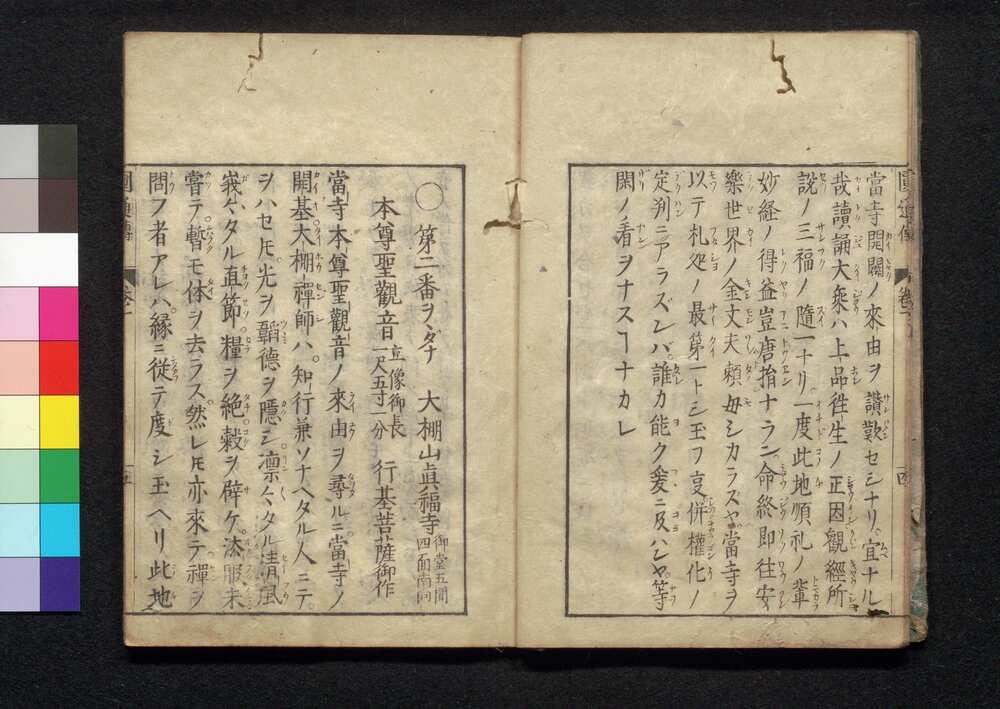 當寺開闢ノ來由ヲ讃歎セシナリ宜ナル
哉讀誦大乗ハ上品徃生ノ正因觀經所
説ノ三福ノ隨一ナリ一度此地順礼ノ輩
妙経ノ得益豈唐捐ナランニ命終即往安
樂世界ノ金文夫頼毋シカラズヤ當寺ヲ
以テ札処ノ最第一トシ玉フ夏併權化ノ
定判ニアラズンバ誰カ能ク爰ニ及ハンヤ等
閑ノ看ヲナスヿナカレ
圓通傳 卷一 四
○第二番ヲヽダナ 大棚山眞福寺 御堂五間四面南向
本尊聖觀音 立像御長一尺五寸一分 行基菩薩御作
當寺本尊聖觀音ノ來由ヲ尋ルニ當寺ノ
開基大棚禪師ハ知行兼ソナヘタル人ニテ
ヲハセ𪜈光ヲ韜德ヲ隱シ凛々タル清風
峩々タル直節糧ヲ絶穀ヲ辟ケ漆服未
嘗テ暫モ体ヲ去ラス然レ𪜈亦來テ禪ヲ
問フ者アレハ縁ニ從テ度シ玉ヘリ此地
圓通傳 卷一 五